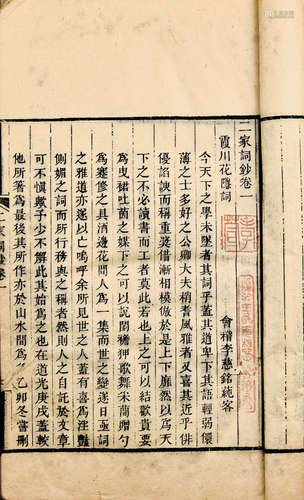 二家詞鈔卷一
霞川花隱詞
會稽李慈銘蒓客
今天下之學未墜者其詞乎蓋其道卑下其語輕儇
薄之士多好之公卿大夫稍耆風雅者又喜其近乎俳
優諂諛而稱重獎借漸相模倣於是上下靡然以為天
下之不必讀書而工者莫此若也上之可以結歡貴要
為曳裾吐茵之媒下之可以說閨襜狎歌舞采蘭贈勺
為蹇修之具酒邊花間人為一集而世之變遂日亟詞
之雅道亦遂以亡嗚呼余所見世之人蓋有喜為注豔
側媚之詞而所行務與之稱者然則人之自託於文章
可不慎歟予少不解此其始為之也在道光庚戌蓋較
他所著為最後其所作亦於山水閒為多乙卯冬嘗刪
二家詞鈔卷一